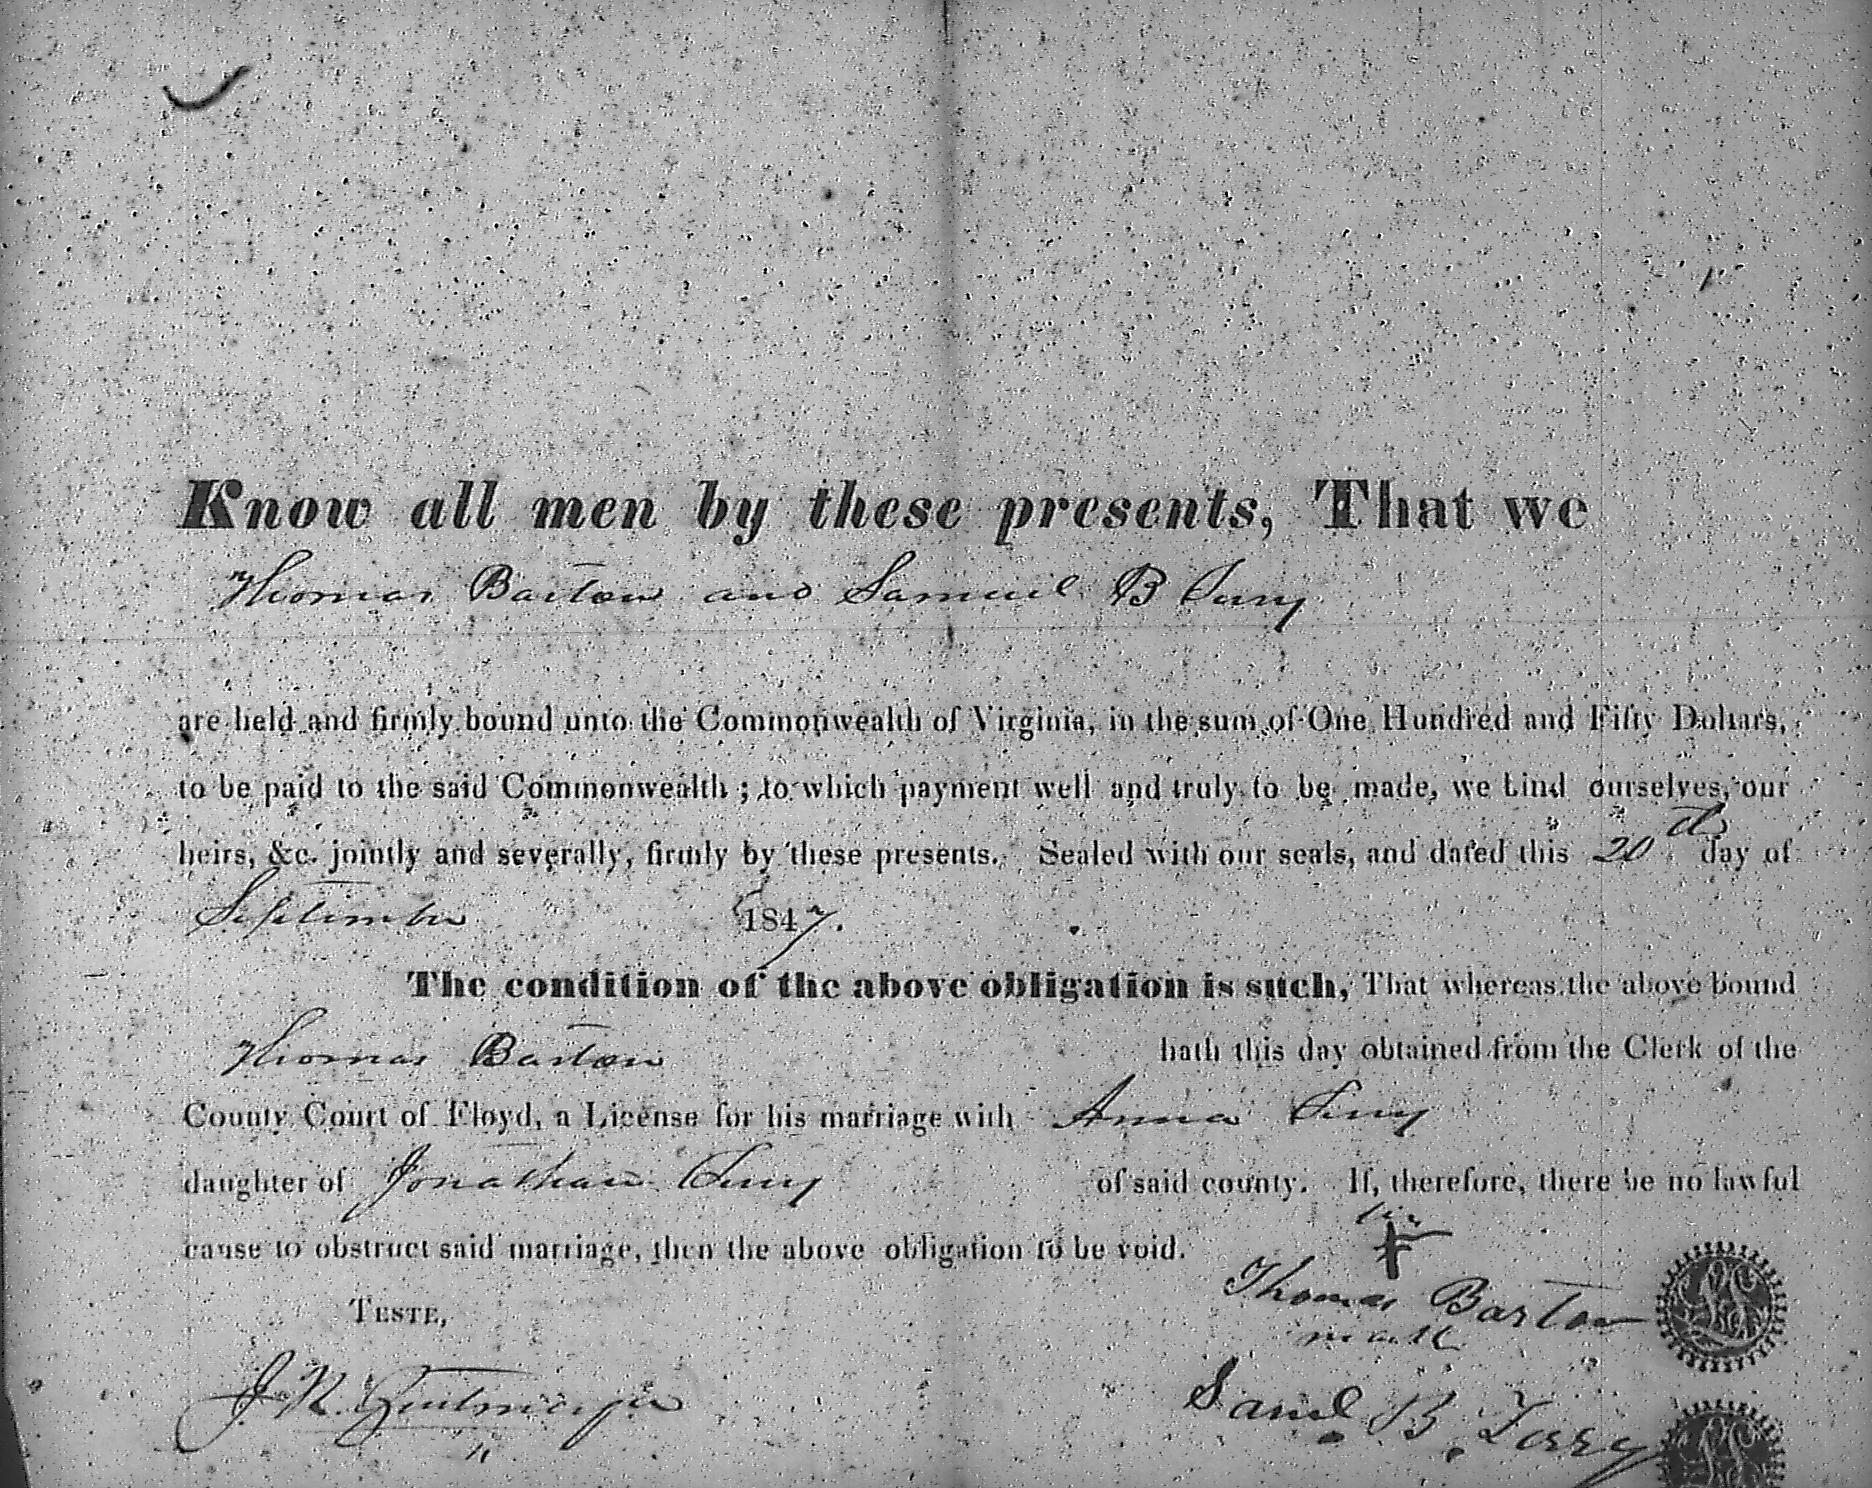 Know all men by these presents, That we
Thomas Barton and Samuel B Terry
are held and firmly bound unto the Commonwealth of Virginia, in the sum of One Hundred and Fifty Dollars,
to be paid to the said Commonwealth ; to which payment well and truly to be made, we bind ourselves, our
heirs, &c. jointly and severally, firmly by these presents. Sealed with our seals, and dated this 20th day of
September 1847.
The condition of the above obligation is such, That whereas the above bound
Thomas Barton hath this day obtained from the Clerk of the
County Court of Floyd, a License for his marriage with Anna Terry
daughter of Jonathan Terry of said county. If, therefore, there be no lawful
cause to obstruct said marriage, then the above obligation to be void.
his
Teste, Thomas Barton
mark
J. N. Saml B. Terry